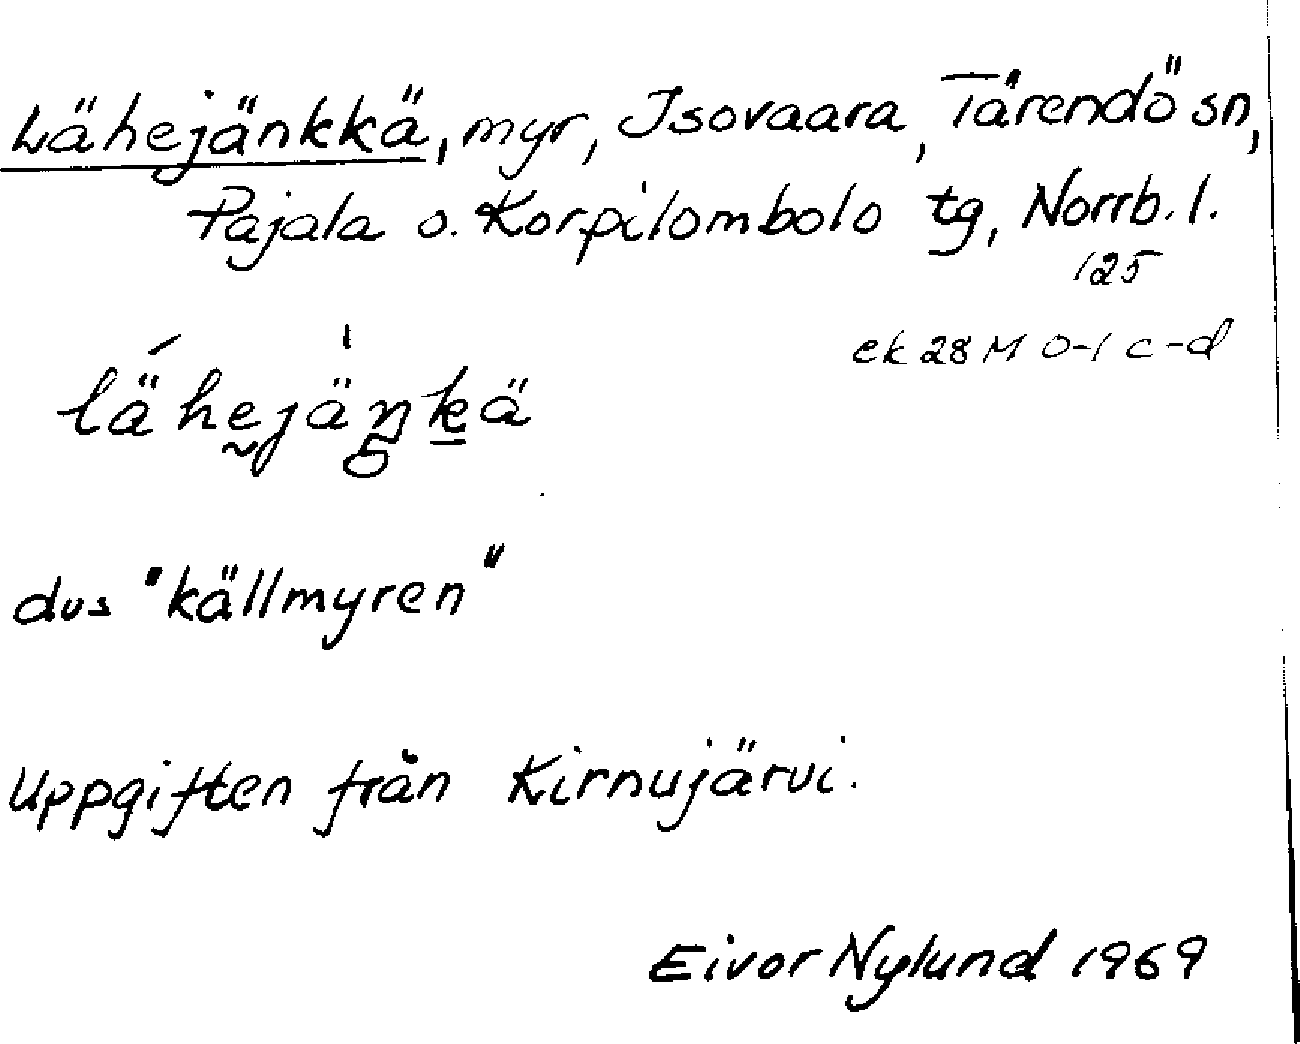 Lähejänkkä, myr, Isovaara, Tärendö sn,
Pajala o. Korpilombolo tg, Norrb. l.
125
ek 28 M 0-1 c-d
lähejäŋkä
dvs "källmyren"
Uppgiften från Kirnujärvi.
Eivor Nylund 1969